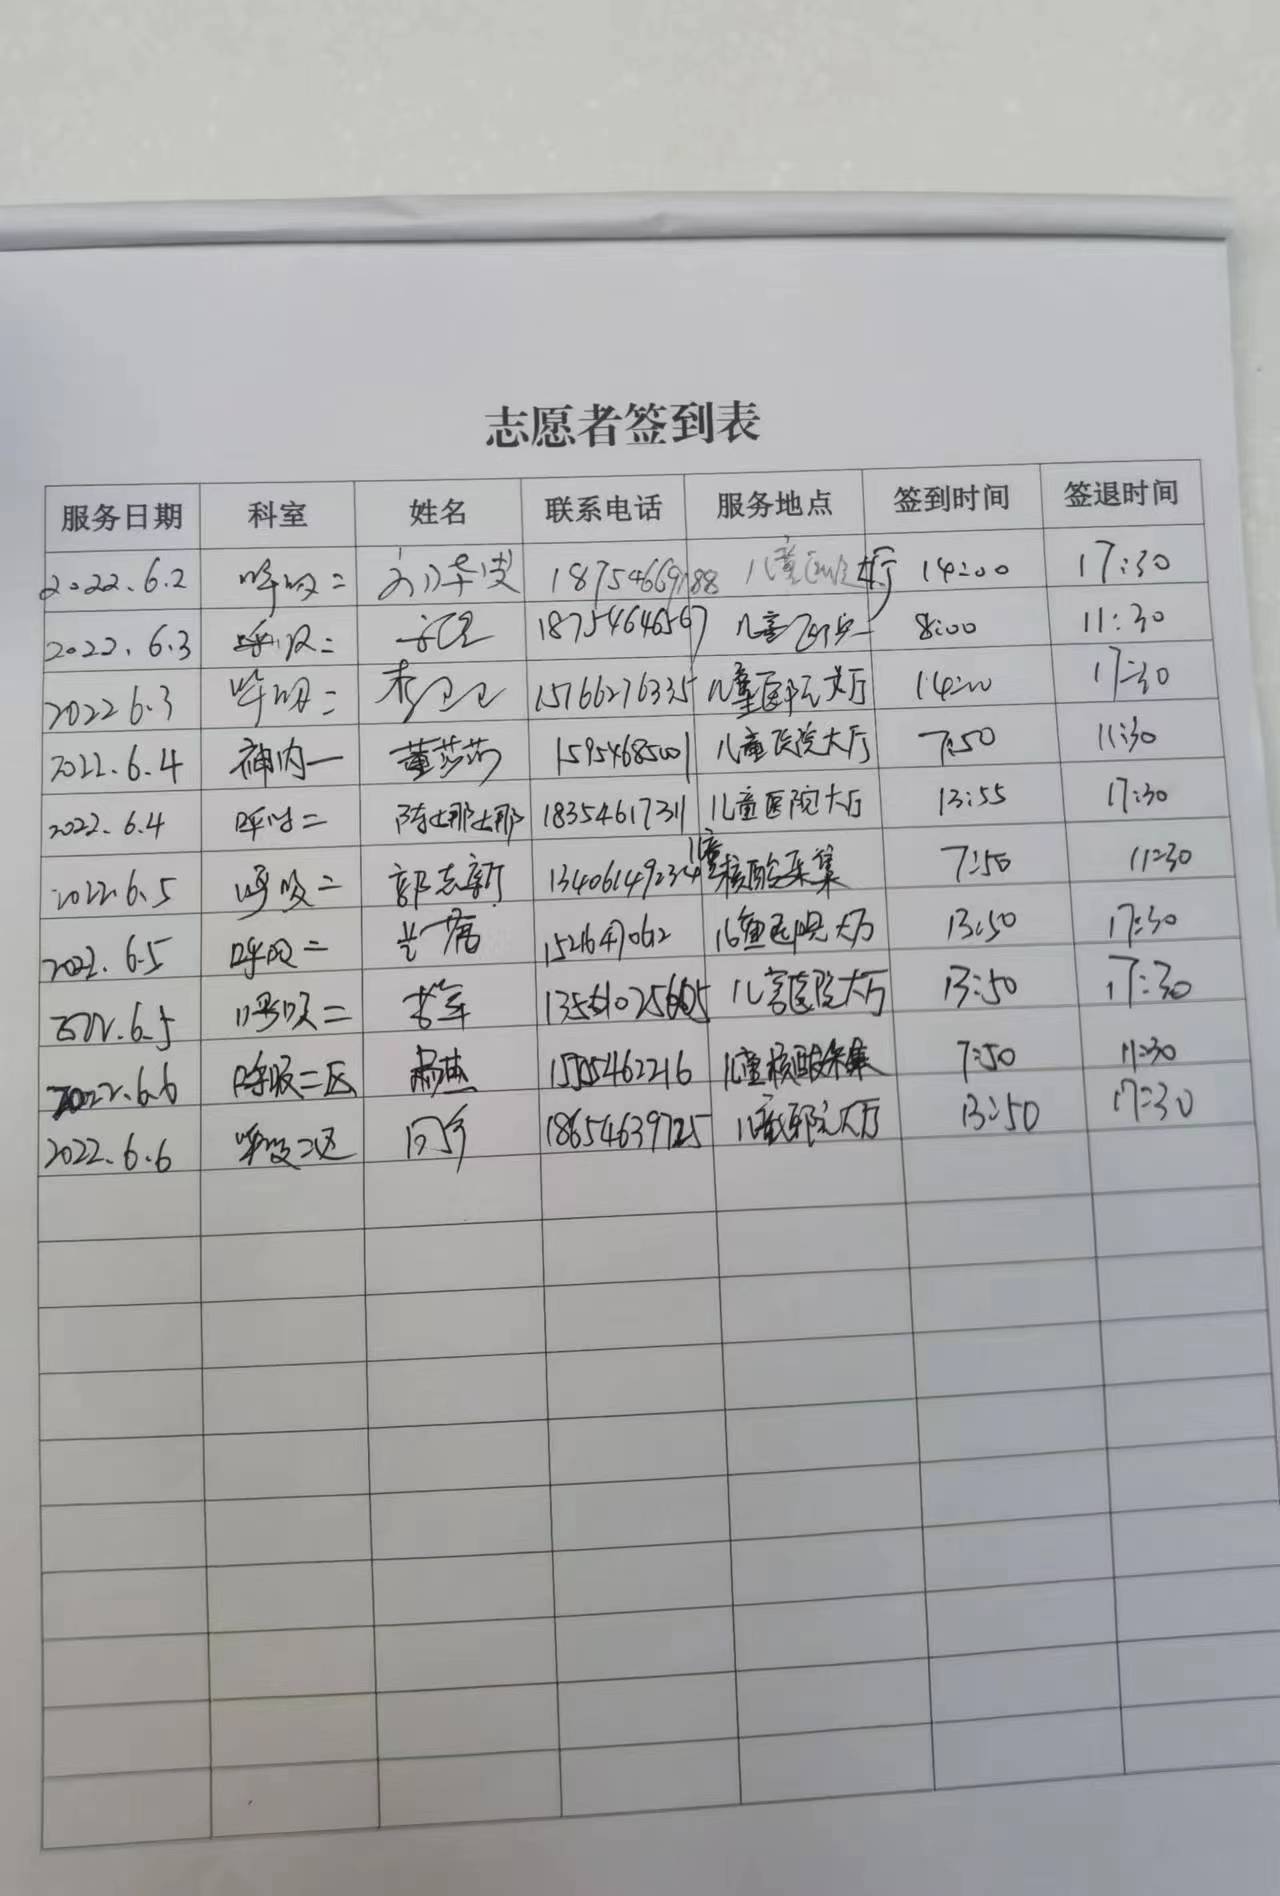 志愿者签到表
服务日期 科室 姓名 联系电话 服务地点 签到时间 签退时间
2022.6.2 呼吸二 18754669188 儿童医院大厅 14:00 17:30
2022.6.3 呼吸二 18754646567 儿童医院 8:00 11:30
2022 6.3 呼吸二 李卫卫 15766276335 儿童医院大厅 14:00 17:30
2022.6.4 神内一 董莎莎 15954685001 儿童医院大厅 7:50 11:30
2022.6.4 呼吸二 陈娜娜 18354617311 儿童医院大厅 13:55 17:30
2022.6.5 呼吸二 郭志新 13406149234 儿童核酸采集 7:50 11:30
2022.6.5 呼吸二 儿童医院大厅 13:50 17:30
2022.6.5 呼吸二 儿童医院大厅 13:50 17:30
2022.6.6 呼吸二区 儿童核酸采集 7:50 11:30
2022.6.6 呼吸二区 儿童医院大厅 13:50 17:30